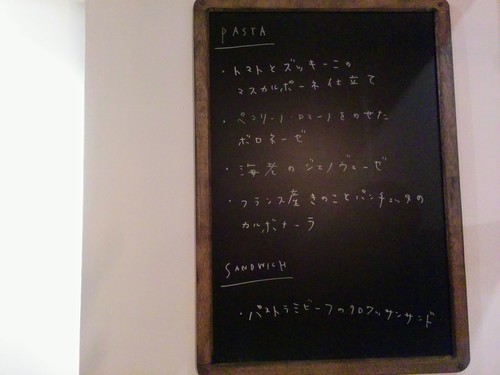 PASTA
・トマトとズッキーニの
マスカルポーネ仕立て
・ペコリーノ・ロマーノをのせた
ボロネーゼ
・海老のジェノヴェーゼ
・フランス産きのことパンチェッタの
カルボナーラ
SANDWICH
・パストラミビーフのクロワッサンサンド